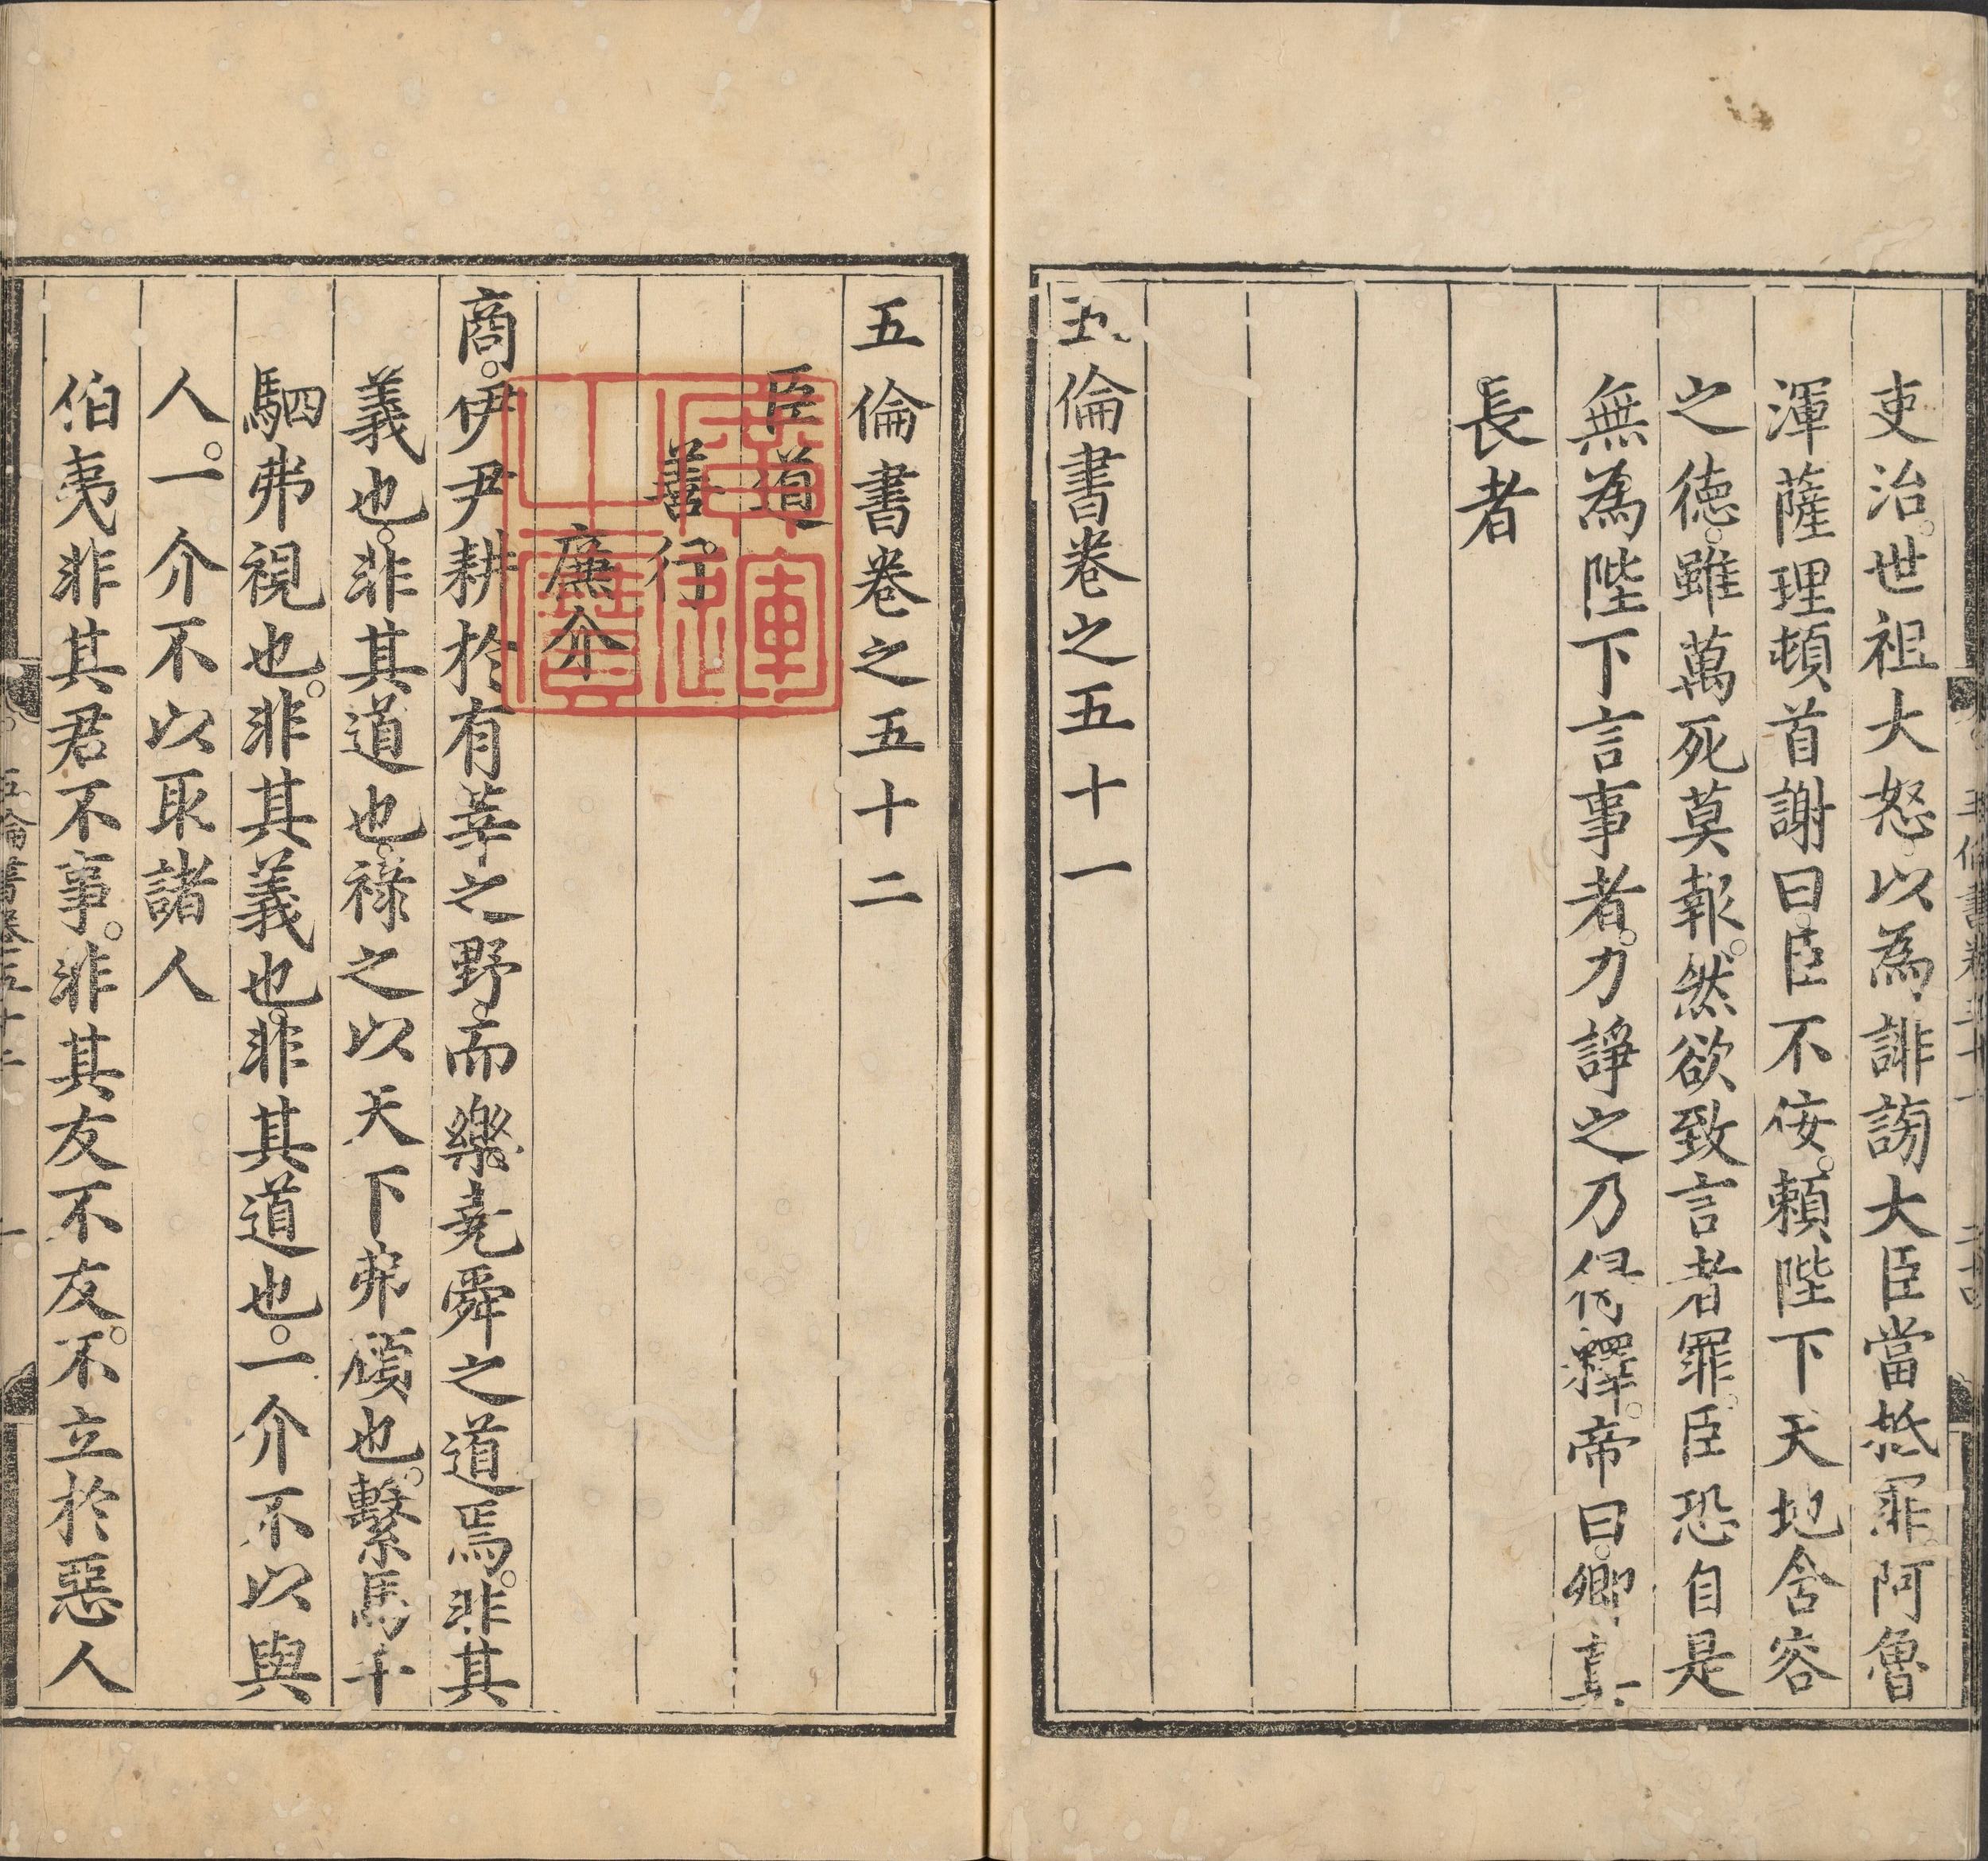 吏治世祖大怒以為誹謗大臣當抵罪阿魯
渾薩理頓首謝曰臣不佞賴陛下天地含容
之德雖萬死莫報然欲致言者罪臣恐自是
無為陛下言事者力諍之乃得釋帝曰卿真
長者
五倫書卷之五十一
五倫書卷之五十二
臣道
善行
廉介
商伊尹耕於有莘之野而樂堯舜之道焉非其
義也非其道也祿之以天下弗顧也繫馬千
駟弗視也非其義也非其道也一介不以與
人一介不以取諸人
伯夷非其君不事非其友不友不立於惡人
五倫書卷五十二 一